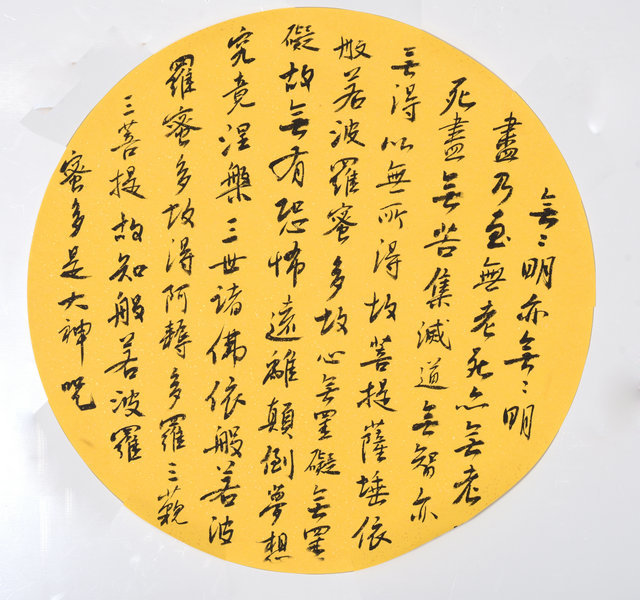 無〻明亦無〻明
盡乃至無老死亦無老
死盡無苦集滅道無智亦
無得以無所得故菩提薩埵依
般若波羅蜜多故心無罣礙無罣
礙故無有恐怖遠離顛倒夢想
究竟涅槃三世諸佛依般若波
羅蜜多故得阿耨多羅三藐
三菩提故知般若波羅
蜜多是大神咒